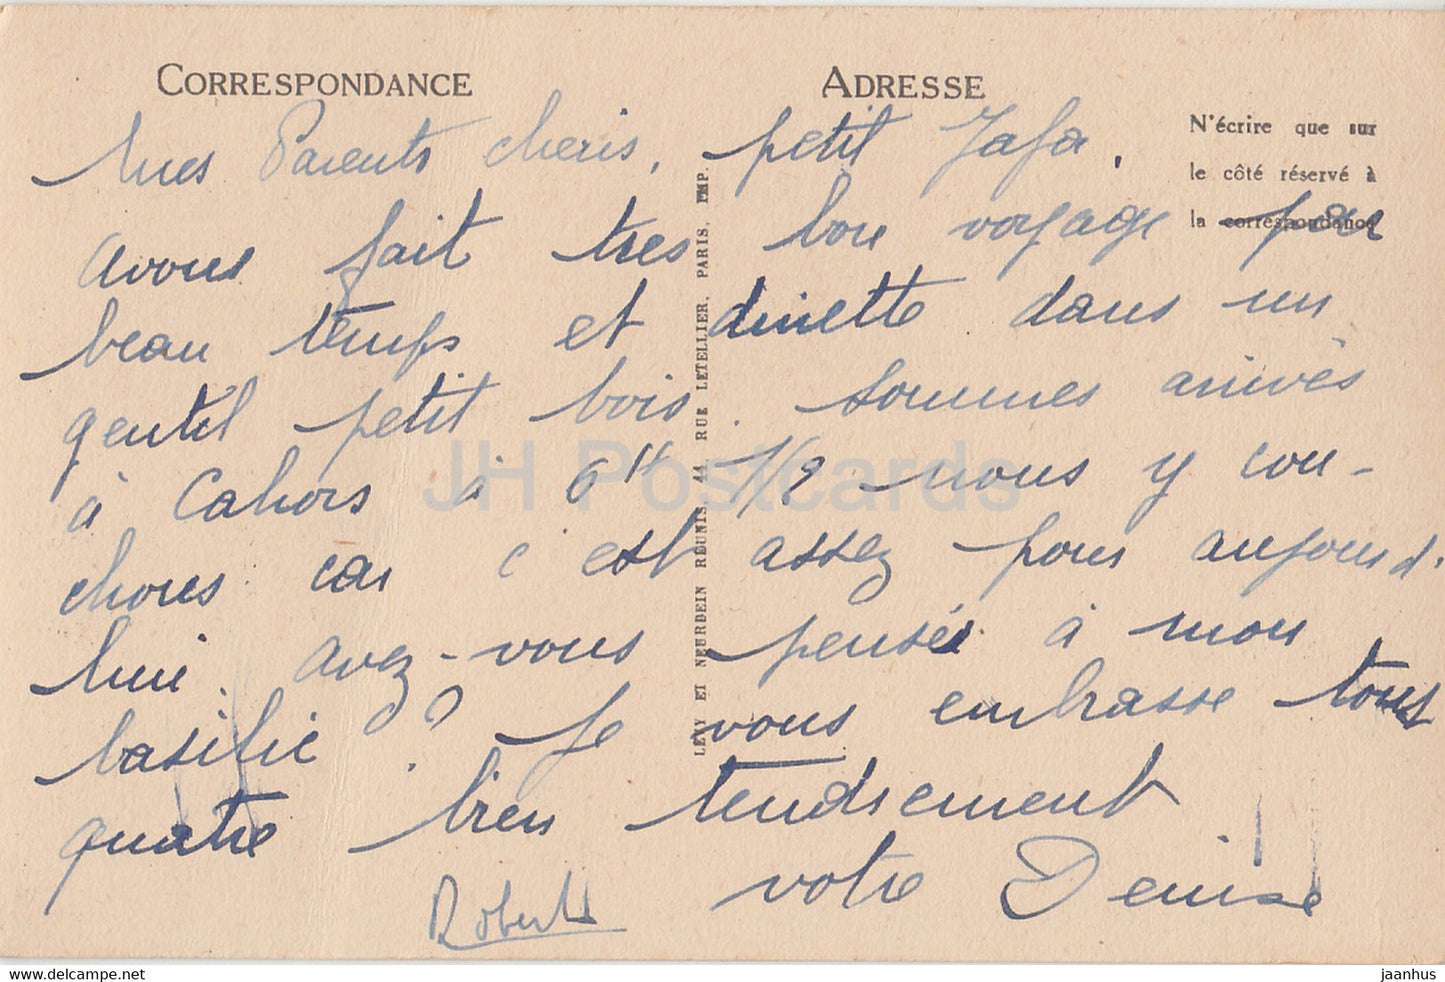 CORRESPONDANCE
ADRESSE
N'écrire que sur
le côté réservé à
la correspondance
mes Parents chéris, petit Jafa,
avons fait tres bon voyage par
beau temps et dinette dans un
gentil petit bois. sommes arrivés
à Cahors à 6 H 1/2 nous y cou-
chons car c'est assez pour aujourd'
hui. avez-vous pensée à mon
basilic ? Je vous embrasse tous
quatre bien tendrement
votre Denise
Robert
LEVY ET NEURDEIN RÉUNIS, 44, RUE LETELLIER, PARIS. IMP.
JH Postcards
www.delcampe.net
jaanhus